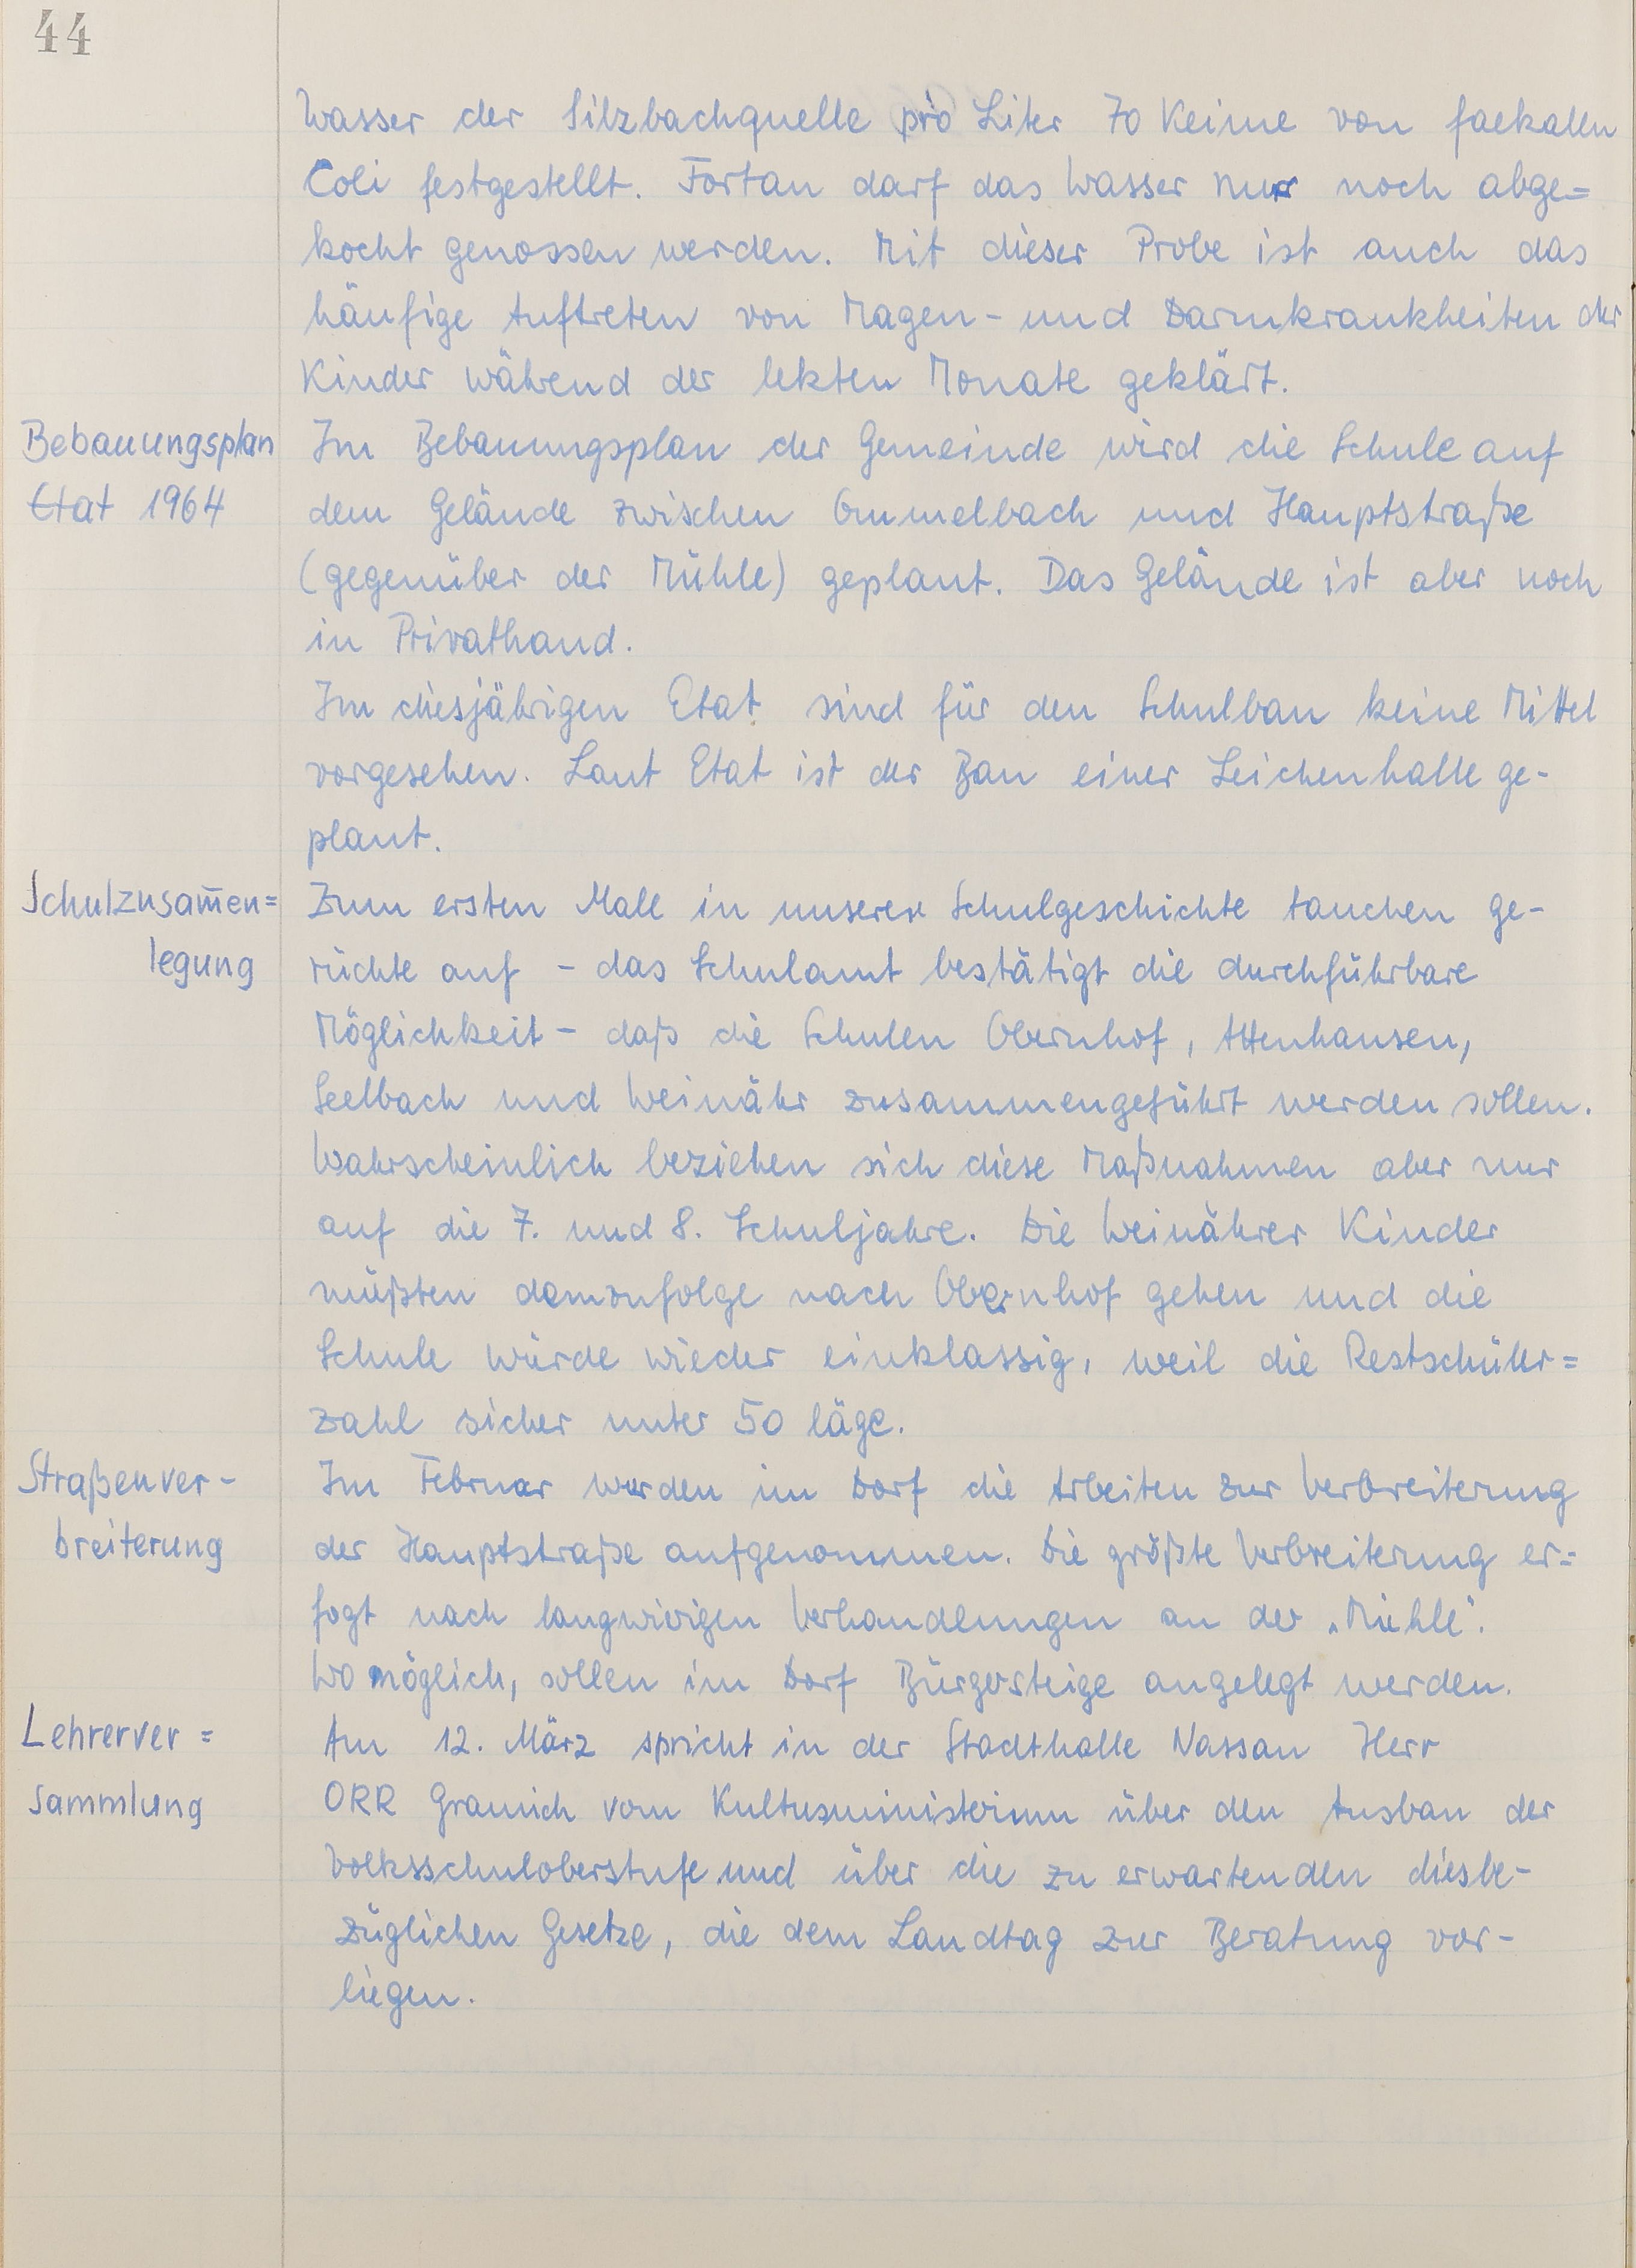 44
Wasser der Silzbachquelle pro Liter 70 Keime von faekalen
Coli festgestellt. Fortan darf das Wasser nur noch abge=
kocht genossen werden. Mit dieser Probe ist auch das
häufige Auftreten von Magen- und Darmkrankheiten der
Kinder während der letzten Monate geklärt.
Bebauungsplan
Etat 1964
Im Bebauungsplan der Gemeinde wird die Schule auf
dem Gelände zwischen Gmmelbach und Hauptstraße
(gegenüber der Mühle) geplant. Das Gelände ist aber noch
in Privathand.
Im diesjährigen Etat sind für den Schulbau keine Mittel
vorgesehen. Laut Etat ist der Bau einer Leichenhalle ge-
plant.
Schulzusam̄en=
legung
Zum ersten Male in unserer Schulgeschichte tauchen Ge-
rüchte auf - das Schulamt bestätigt die durchführbare
Möglichkeit - daß die Schulen Obernhof, Attenhausen,
Seelbach und Weinähr zusammengeführt werden sollen.
Wahrscheinlich beziehen sich diese Maßnahmen aber nur
auf die 7. und 8. Schuljahre. Die Weinährer Kinder
müßten demzufolge nach Obernhof gehen und die
Schule würde wieder einklassig, weil die Restschüler=
zahl sicher unter 50 läge.
Straßenver-
breiterung
Im Februar werden im Dorf die Arbeiten zur Verbreiterung
der Hauptstraße aufgenommen. Die größte Verbreiterung er=
fogt nach langwierigen Verhandlungen an der „Mühle".
Wo möglich, sollen im Dorf Bürgersteige angelegt werden.
Lehrerver=
sammlung
Am 12. März spricht in der Stadthalle Nassau Herr
ORR Gramich vom Kultusministerium über den Ausbau der
Volksschuloberstufe und über die zu erwartenden diesbe-
züglichen Gesetze, die dem Landtag zur Beratung vor-
liegen.